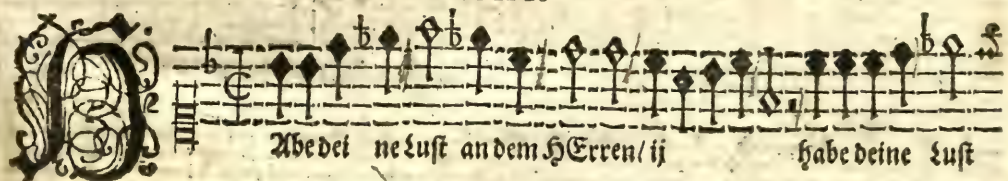 HAbe dei ne Lust an dem HErren/ ij habe deine Lust